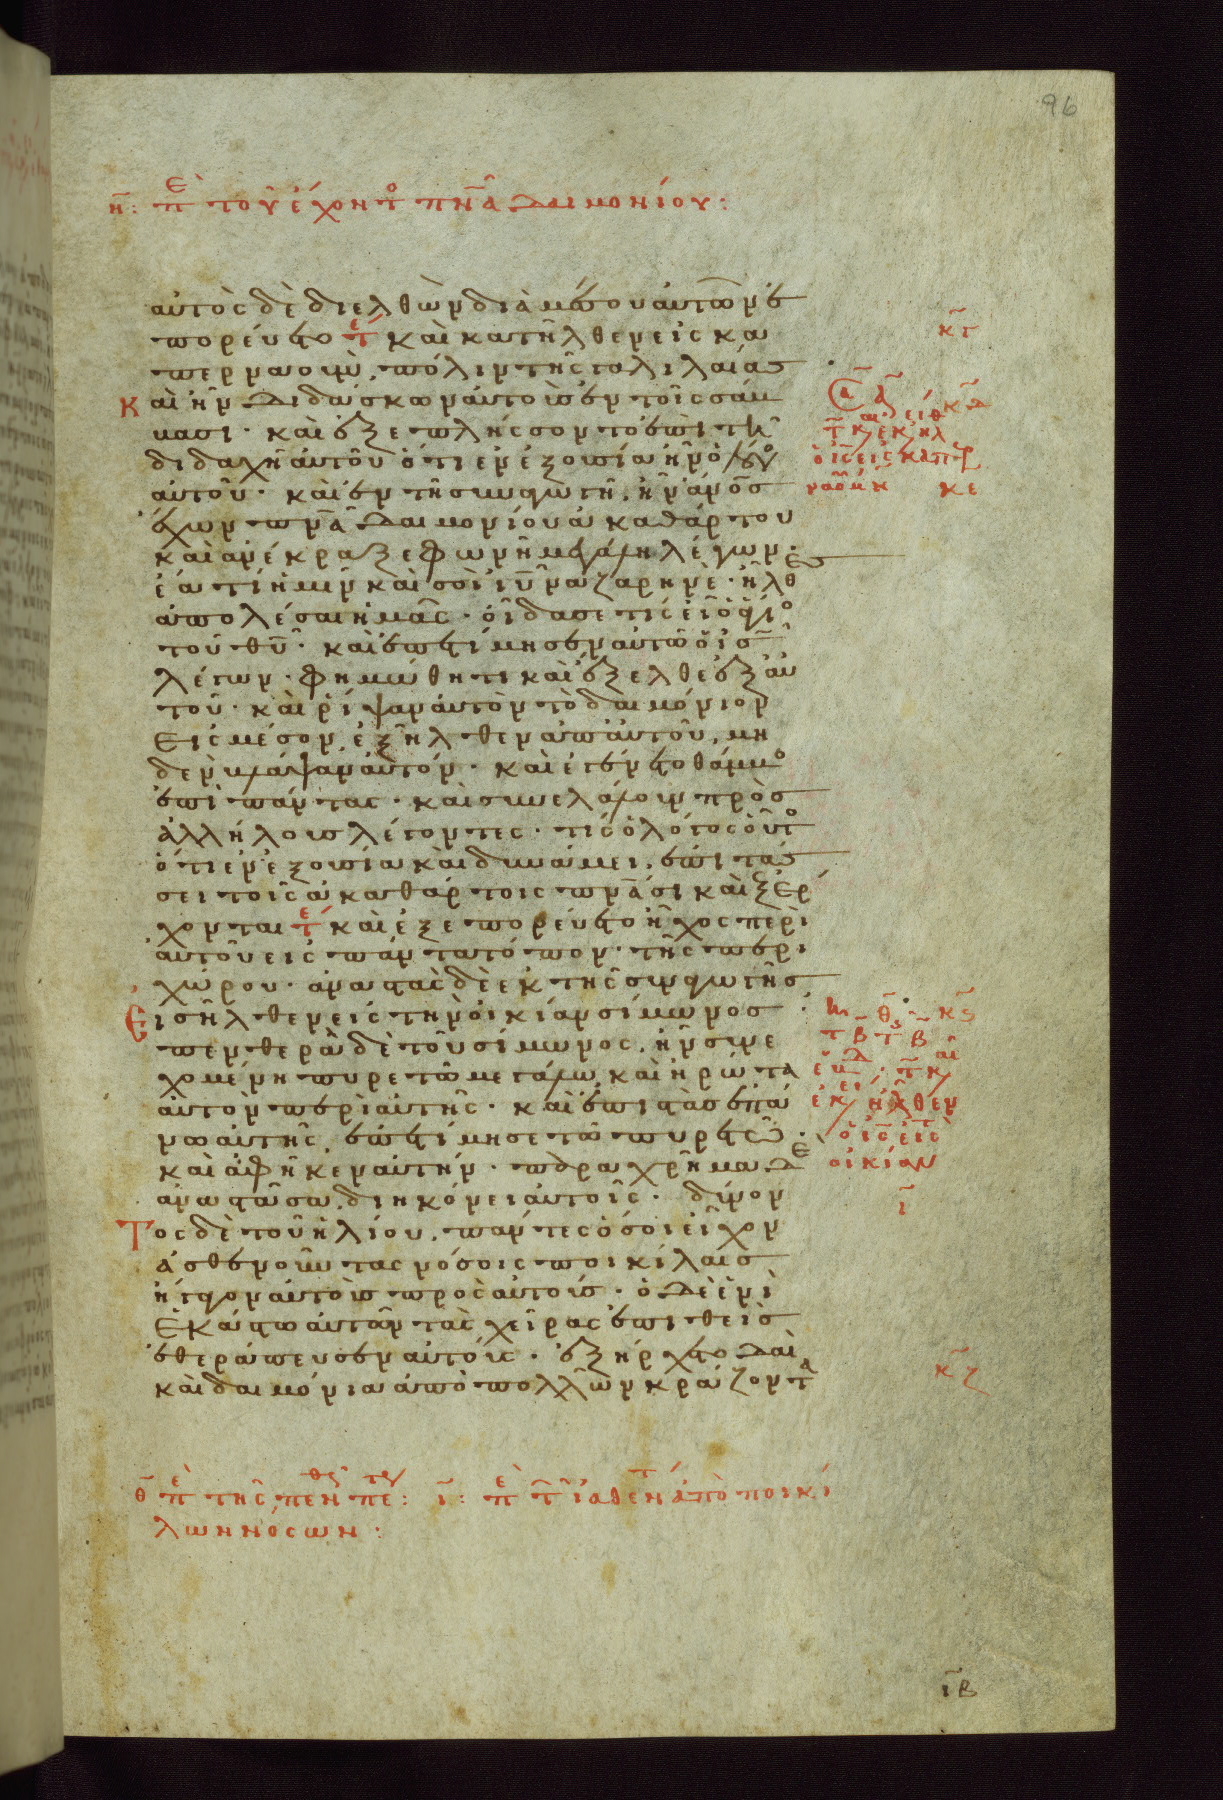 96
η̅: πὲ τοῦ ἔχοντο πν̅α δαιμονίου:
αὐτὸς δὲ διελθὼν διὰ μέσου αὐτῶν ἐ
πορεύετο τε καὶ κατῆλθεν εἰς κα
περναοὺμ, πόλιν τῆς γαλιλαίας
Καὶ ἦν διδάσκων αὐτοὺς ἐν τοῖς σάμ
μασι· καὶ ἐξεπλήσσοντο ἐπὶ τῆ
διδαχῆ αὐτοῦ ὅτι ἐν ἐξουσία ἦν ὁ λόγο
αὐτοῦ· καὶ ἐν τῆ συναγωγῆ, ἦν ἄνο̅σ
ἔχων πν̅α δαιμονίου ἀκαθάρτου
καὶ ἀνέκραξε φωνῆ μεγάλη λέγων·
ἔα τί ἡμῖν καὶ σοὶ ιυ̅ ναζαρηνὲ· ἦλθε
ἀπολέσαι ἡμᾶς· οἶδα σε τίς εἶ ὁ ἅγιο
τοῦ θυ̅· καὶ ἐπετίμησεν αὐτῶ ὁ ισ̅
λέγων· φημώθητι καὶ ἔξελθε ἐξ αὐ
τοῦ· καὶ ρίψαν αὐτὸν τὸ δαιμόνιον
εἰς μέσον, ἐξῆλθεν ἀπ' αὐτοῦ, μη
δὲν βλάψαν αὐτόν· καὶ ἐγένετο θάμβο
ἐπὶ πάντας· καὶ συνελάλουν πρὸς
ἀλλήλους λέγοντες· τίς ὁ λόγος οὗτο
ὅτι ἐν ἐξουσία καὶ δυνάμει, ἐπιτάσ
σει τοῖς ἀκαθάρτοις πν̅ασι καὶ ἐξέρ
χονται τε καὶ ἐξεπορεύετο ἦχος περὶ
αὐτοῦ εἰς πάντα τόπον· τῆς περι
χώρου· ἀναστὰς δὲ ἐκ τῆς συναγωγῆς
Εἰσῆλθεν εἰς τὴν οἰκίαν σίμωνος·
πενθερὰ δὲ τοῦ σίμωνος, ἦν συνε
χομένη πυρετῶ μεγάλω, καὶ ἠρώτησα
αὐτὸν περὶ αὐτῆς· καὶ ἐπιστὰς ἐπά
νω αὐτῆς, ἐπετίμησε τῶ πυρετῶ·
καὶ ἀφῆκεν αὐτήν· παραχρῆμα δὲ
ἀναστᾶσα, διηκόνει αὐτοῖς· δύνον
Τος δὲ τοῦ ἡλίου, πάντες ὅσοι εἶχον
ἀσθενοῦντας νόσοις ποικίλαις
ἤγαγον αὐτοὺς πρὸς αὐτούς· ὁ δὲ ἑνὶ
ἑκάστω αὐτῶν τὰς χεῖρας ἐπιθεὶς
ἐθεράπευσεν αὐτούς· ἐξήρχετο δὲ
καὶ δαιμόνια ἀπὸ πολλῶν κράζοντα
κε
οἰκίαν
ι̅
κ̅ζ
θ̅ πὲ τῆς πενθς πετου: ι̅: πὲ τ̅ ἰαθέντ ἀπὸ ποικί
λων νόσων·
ι̅β